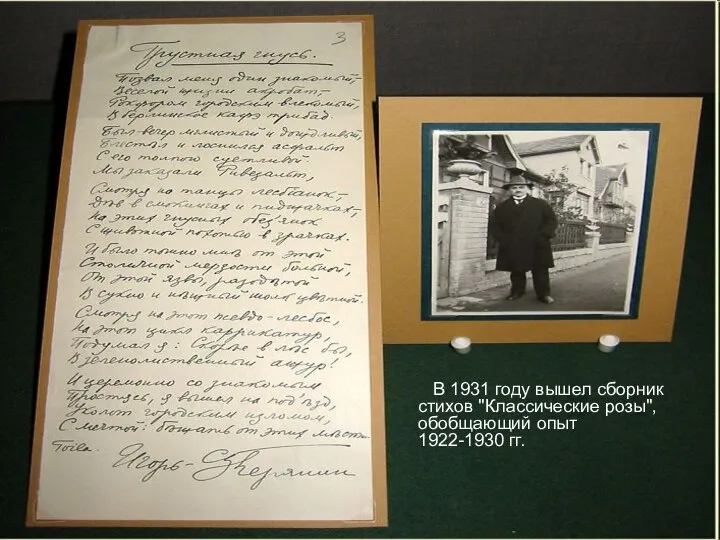 3
Грустная гнусь.
Позвал меня один знакомый,—
Веселой жизни акробат,—
Рокфором городским влекомый,
В берлинское кафэ трибад.
Был вечер мглистый и дождливый,
Блистал и лоснился асфальт
С его толпою суетливой.
Мы заказали Ривезальт,
Смотря на танцы лесбианок,—
Дев в смокингах и пиджачках,—
На этих гнусных обез'янок
С животной похотью в зрачках.
И было тошно мне от этой
Столичной мерзости больной,
От этой язвы, разодетой
В сукно и нежный шолк цветной.
Смотря на этот псевдо-лесбос,
На этот цикл каррикатур,
Подумал я: Скорее в лес бы,
В зеленолиственный ажур!
И церемонно со знакомым
Простясь, я вышел на под'езд,
Уколот городским изломом,
С мечтой: бежать от этих мест.
Toila.
Игорь-Северянин
В 1931 году вышел сборник
стихов "Классические розы",
обобщающий опыт
1922-1930 гг.